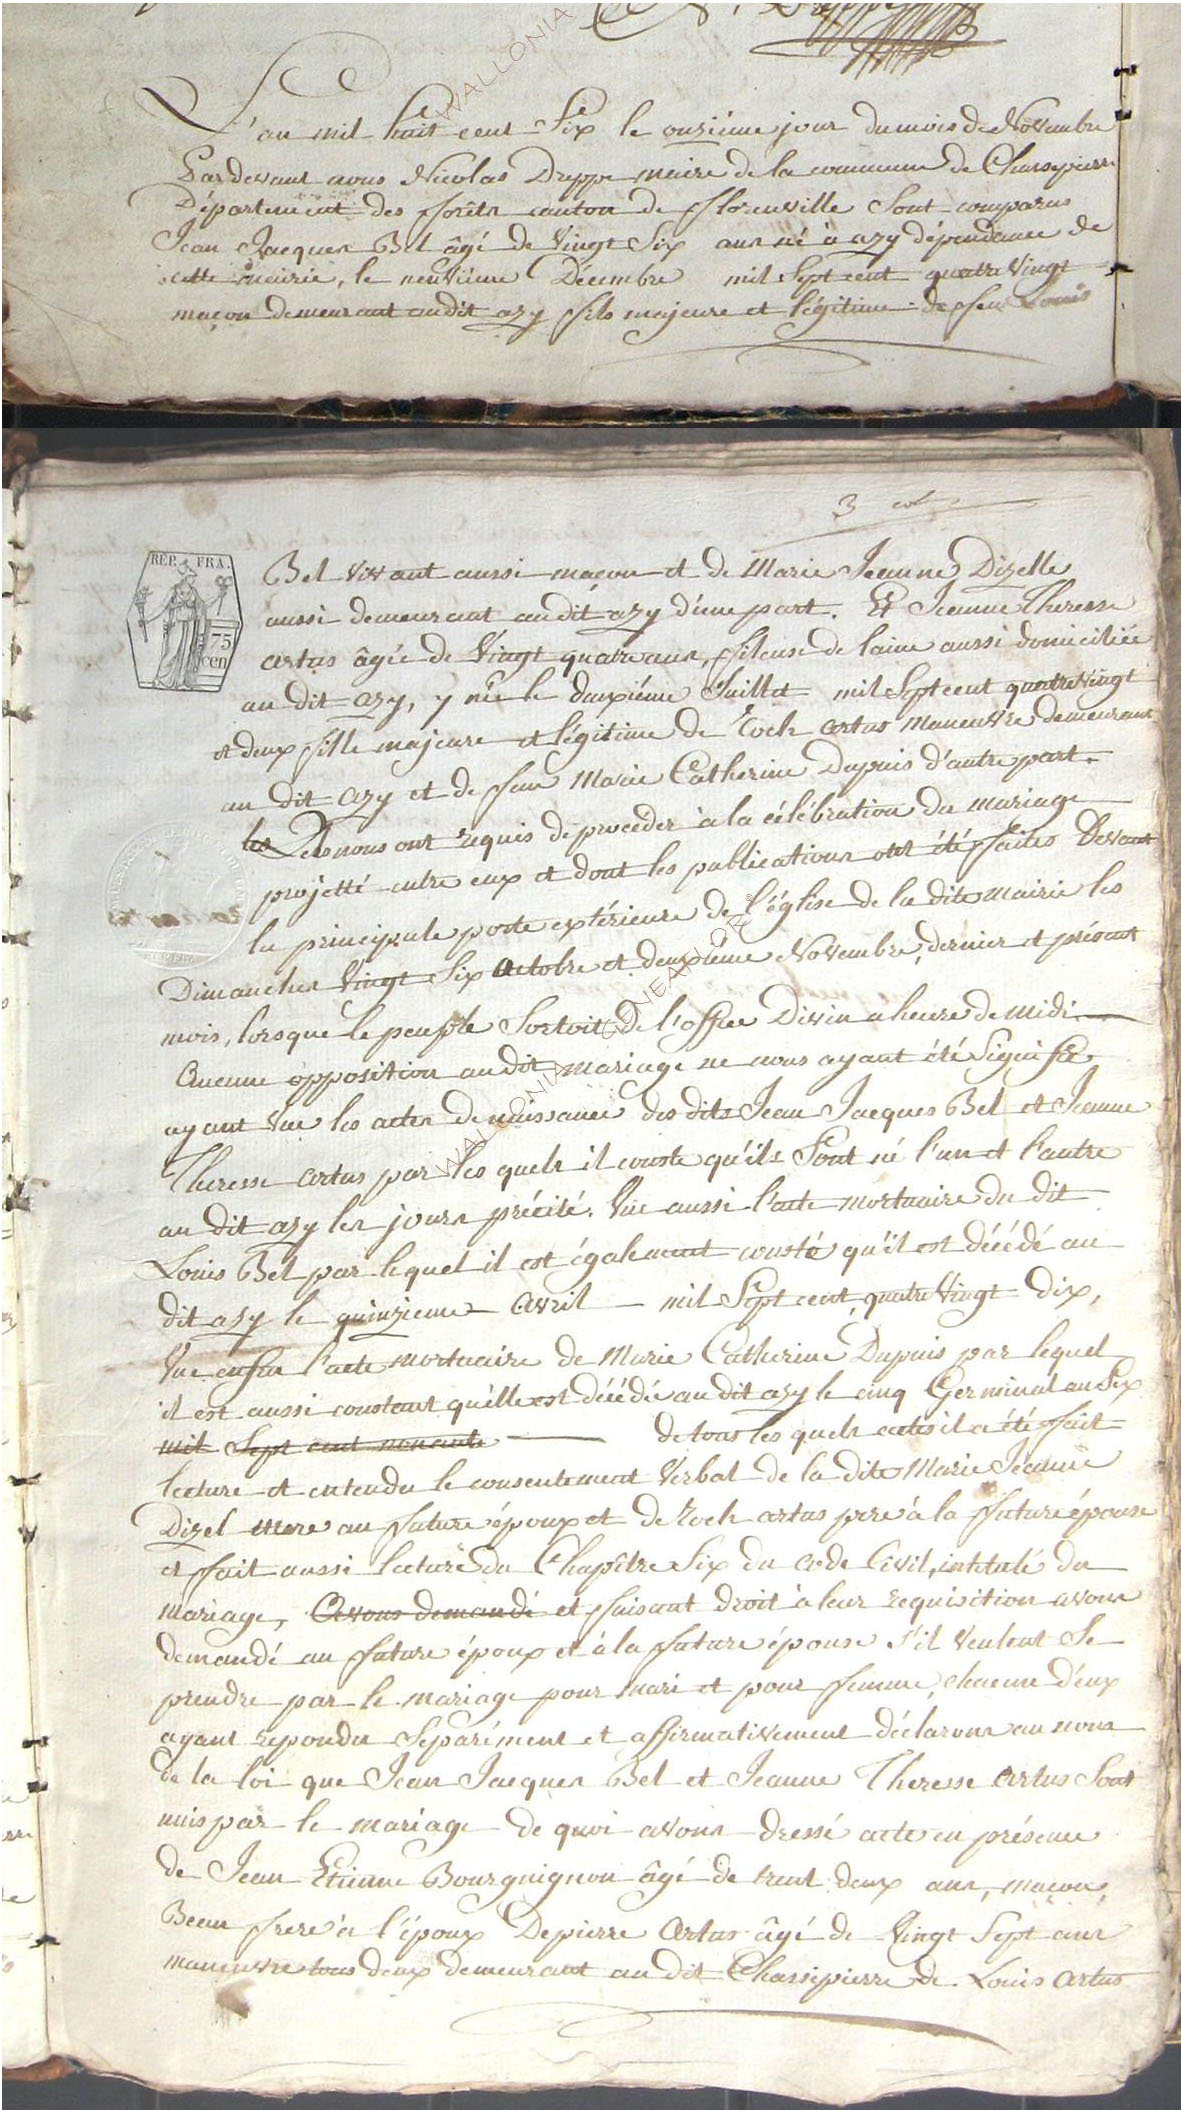 L'an mil huit cent Six le onzième jour du mois de Novembre
Pardevant nous Nicolas Drappe maire de la commune de Chassepierre
Département des fforêts canton de fflorenville Sont comparus
Jean Jacques Bel âgé de Vingt Six ans né à azy dépendance de
cette mairie, le neuvième Décembre mil Sept cent quatre Vingt
maçon demeurant audit azy ffils majeure et légitime de ffeu Louis
3 rol
REP. FRA.
75
cen
Bel vivant aussi maçon et de Marie Jeanne Dizelle
aussi demeurant au dit azy d'une part. Et Jeanne Theresse
artus âgée de Vingt quatre ans, ffileuse de laine aussi domiciliée
au dit azy, y née le deuxième Juillet mil Sept cent quatre Vingt
et deux ffille majeure et légitime de Roch artus Maneuvre demeurant
au dit azy et de ffeu Marie Catherine Dupuis d'autre part.
les Lels nous ont requis de proceder à la célébration du mariage
projetté entre eux et dont les publications ont été ffaites Devant
la principale porte extérieure de l'église de la dite Mairie les
Dimanches Vingt Six Octobre et deuxième Novembre, dernier et présent
mois, lorsque le peuple Sortoit de l'office Divin a heure de midi
Aucune opposition audit mariage ne nous ayant été Signifié
ayant Vue les actes de naissance des dits Jean Jacques Bel et Jeanne
Theresse artus par les quels il conste qu'ils Sont né l'un et l'autre
au dit azy les jours précité. Vue aussi l'acte mortuaire du dit
Louis Bel par lequel il est également consté qu'il est décédé au
dit azy le quinzieme Avril mil Sept cent quatre Vingt Dix,
Vue enfin l'acte mortuaire de Marie Catherine Dupuis par lequel
il est aussi constant qu'elle est décédé au dit azy le cinq Germinal an Six
mil Sept cent nonante de tous les quels actes il a été ffait
lecture et entendu le consentement Verbal de la dite Marie Jeanne
Dizel mere au ffuture époux et de Roch artus pere à la ffuture épouse
et ffait aussi lecture du Chapître Six du code Civil, intitulé du
mariage, Avons demandé et ffaisant droit à leur requisition avons
demandé au ffuture époux et à la ffuture épouse s'il veulent Se
prendre par le mariage pour mari et pour ffemme, chacun d'eux
ayant repondu Séparément et affirmativement déclarons au nom
de la loi que Jean Jacques Bel et Jeanne Therese Artus Sont
unis par le mariage de quoi avons dressé acte en présence
de Jean Etienne Bourguignon âgé de trent deux ans, maçon,
Beau ffrere à l'époux De pierre Artus âgé de Vingt Sept ans
maneuvre tous deux demeurant au dit Chassepierre de Louis Artus
WALLONIA
GENEAFLOR
WALLONIA